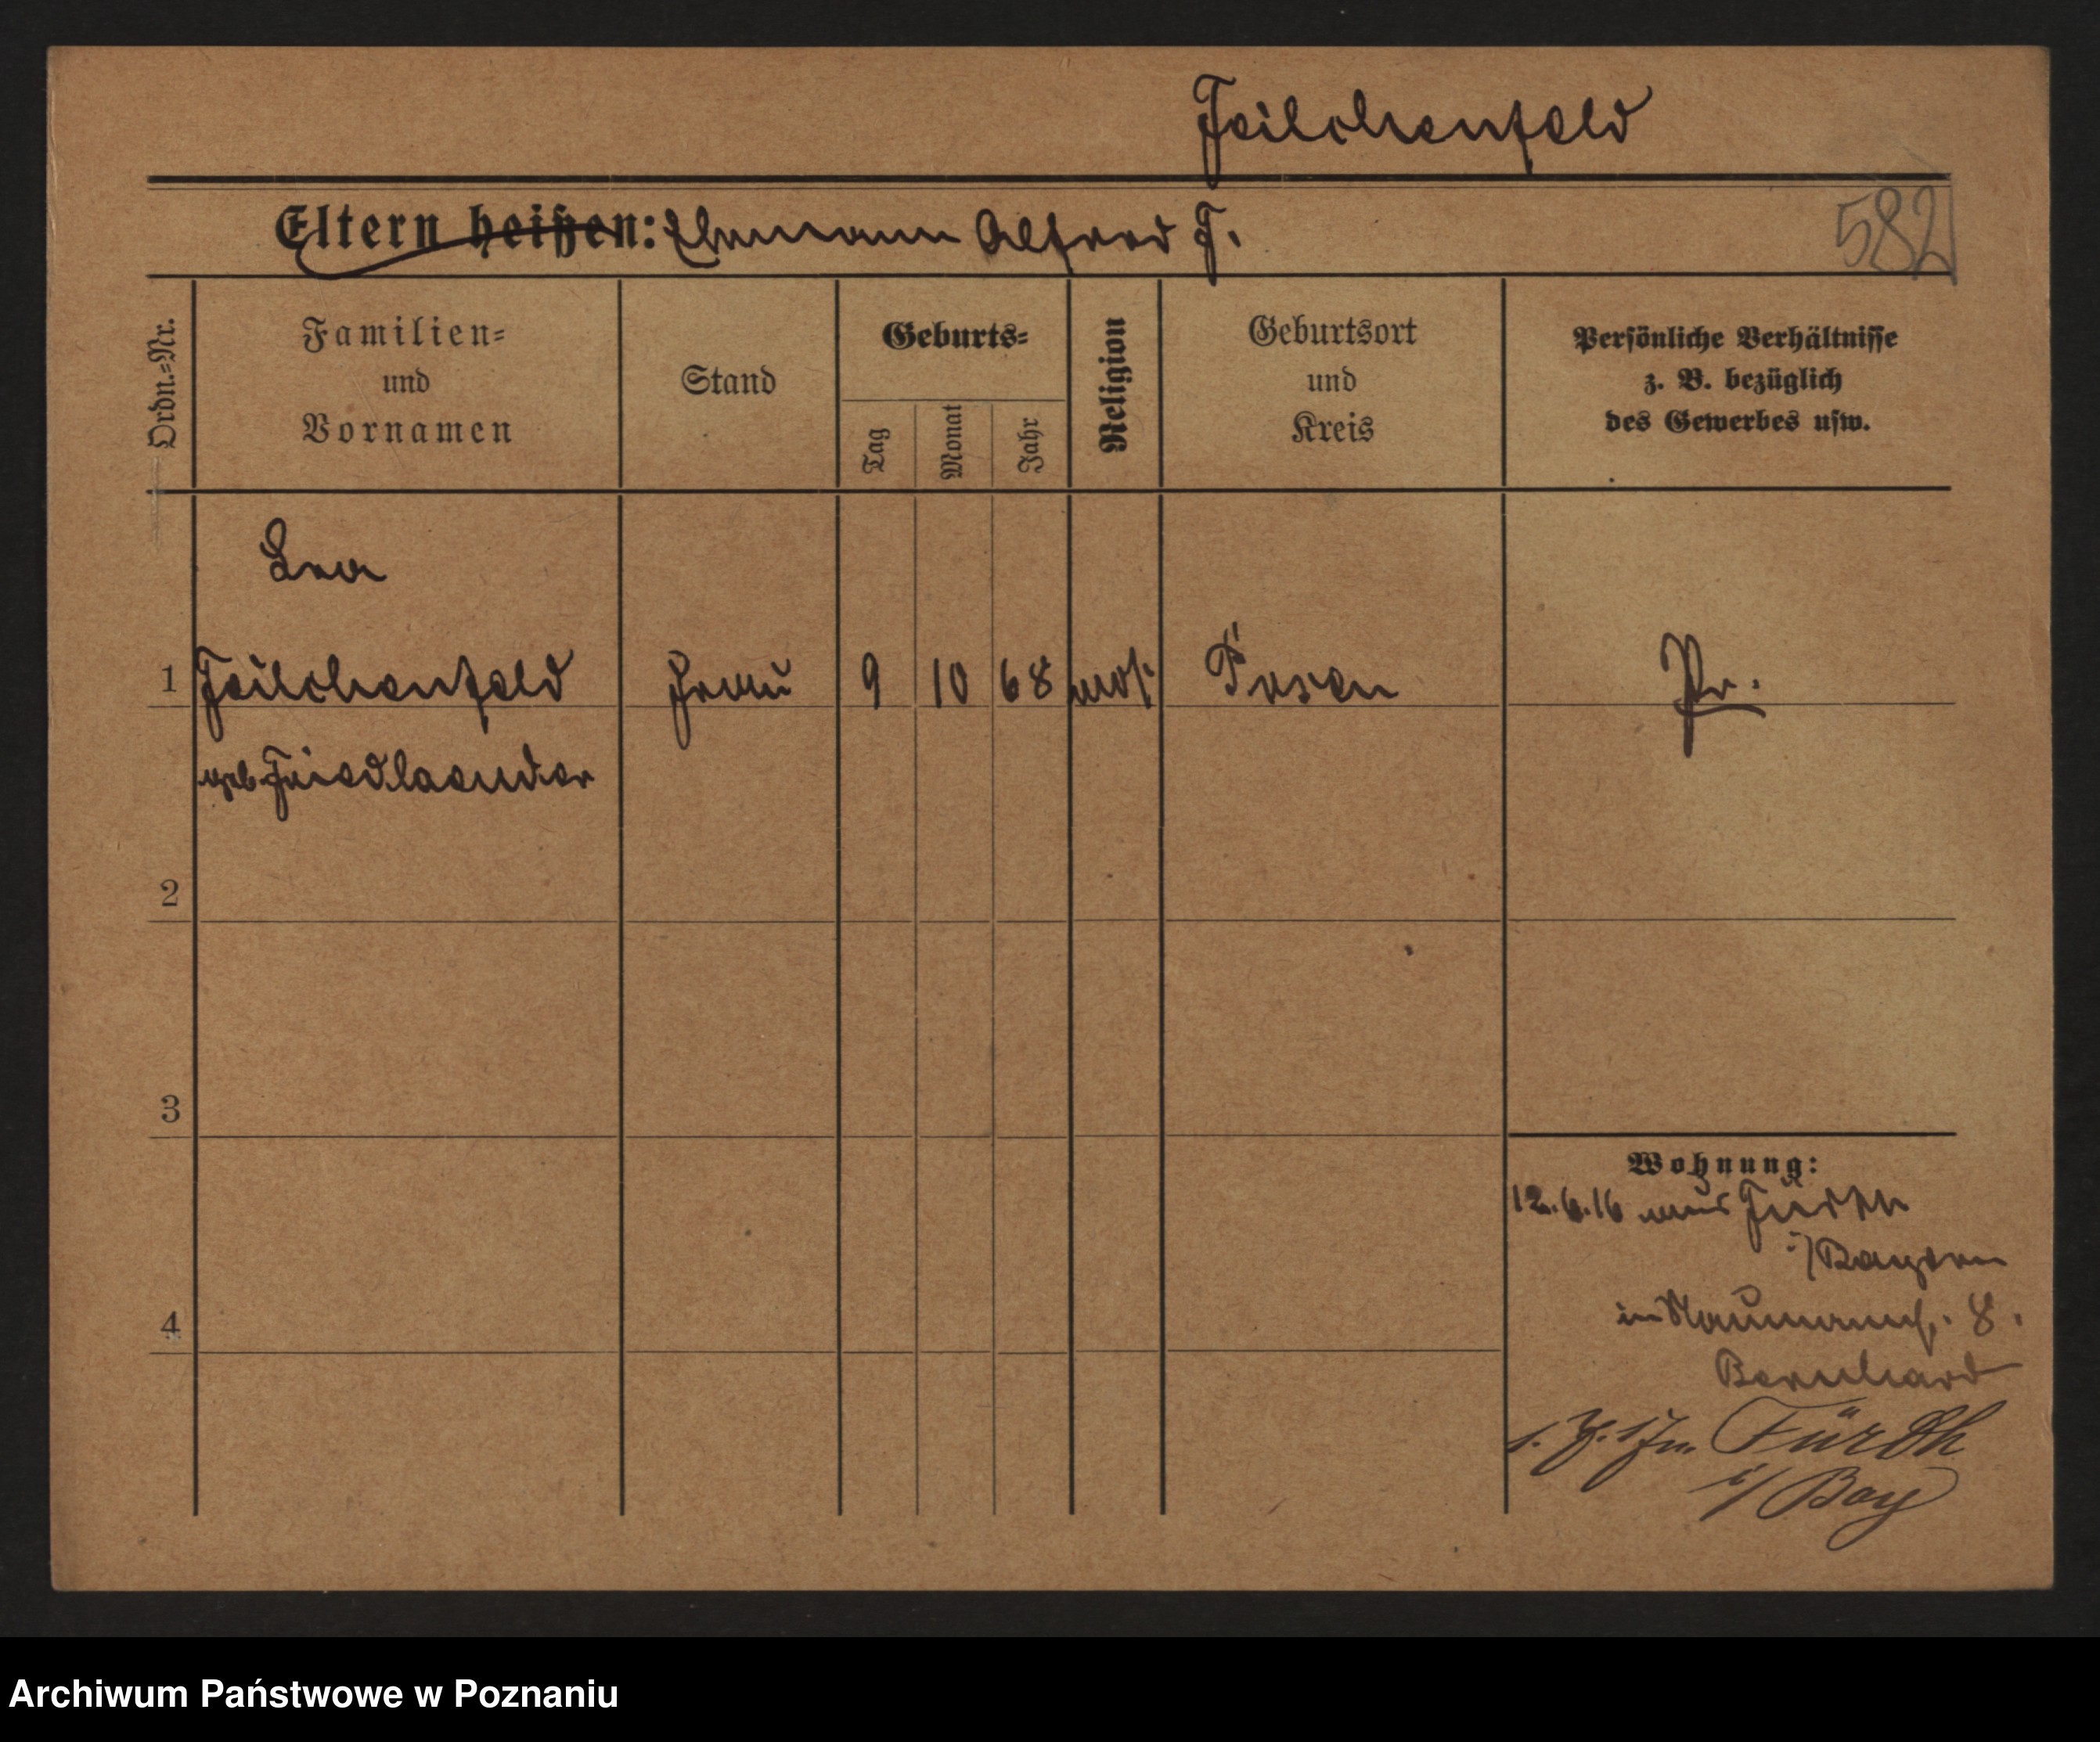 Feilchenfeld
Eltern heißen: Ehemann Alfred F.
582
Ordn.-Nr.
Familien-
und
Vornamen
Stand
Geburts-
Tag
Monat
Jahr
Religion
Geburtsort
und
Kreis
Persönliche Verhältnisse
z. B. bezüglich
des Gewerbes usw.
1
Feilchenfeld Frau 9 10 68 mos. Posen Pr.
geb. Friedlaender
2
3
4
Wohnung:
12.6.16 aus Fürth
i/Bayern
in Naumannstr. 8.
Bernhard
Fürth
i/Bay
Archiwum Państwowe w Poznaniu